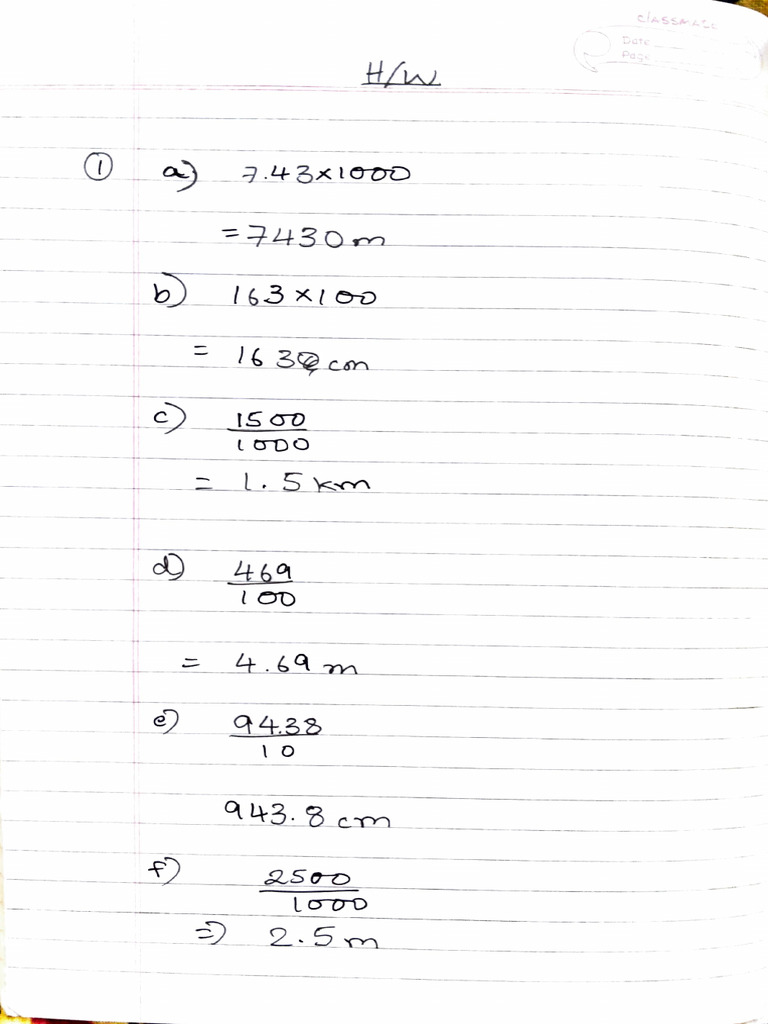 classmate
Date
Page
H/W
① a) 7.43×1000
= 7430m
b) 163×100
= 163 cm
c) 1500
1000
= 1.5 km
d) 469
100
= 4.69 m
e) 94.38
10
943.8 cm
f) 2500
1000
=) 2.5 m